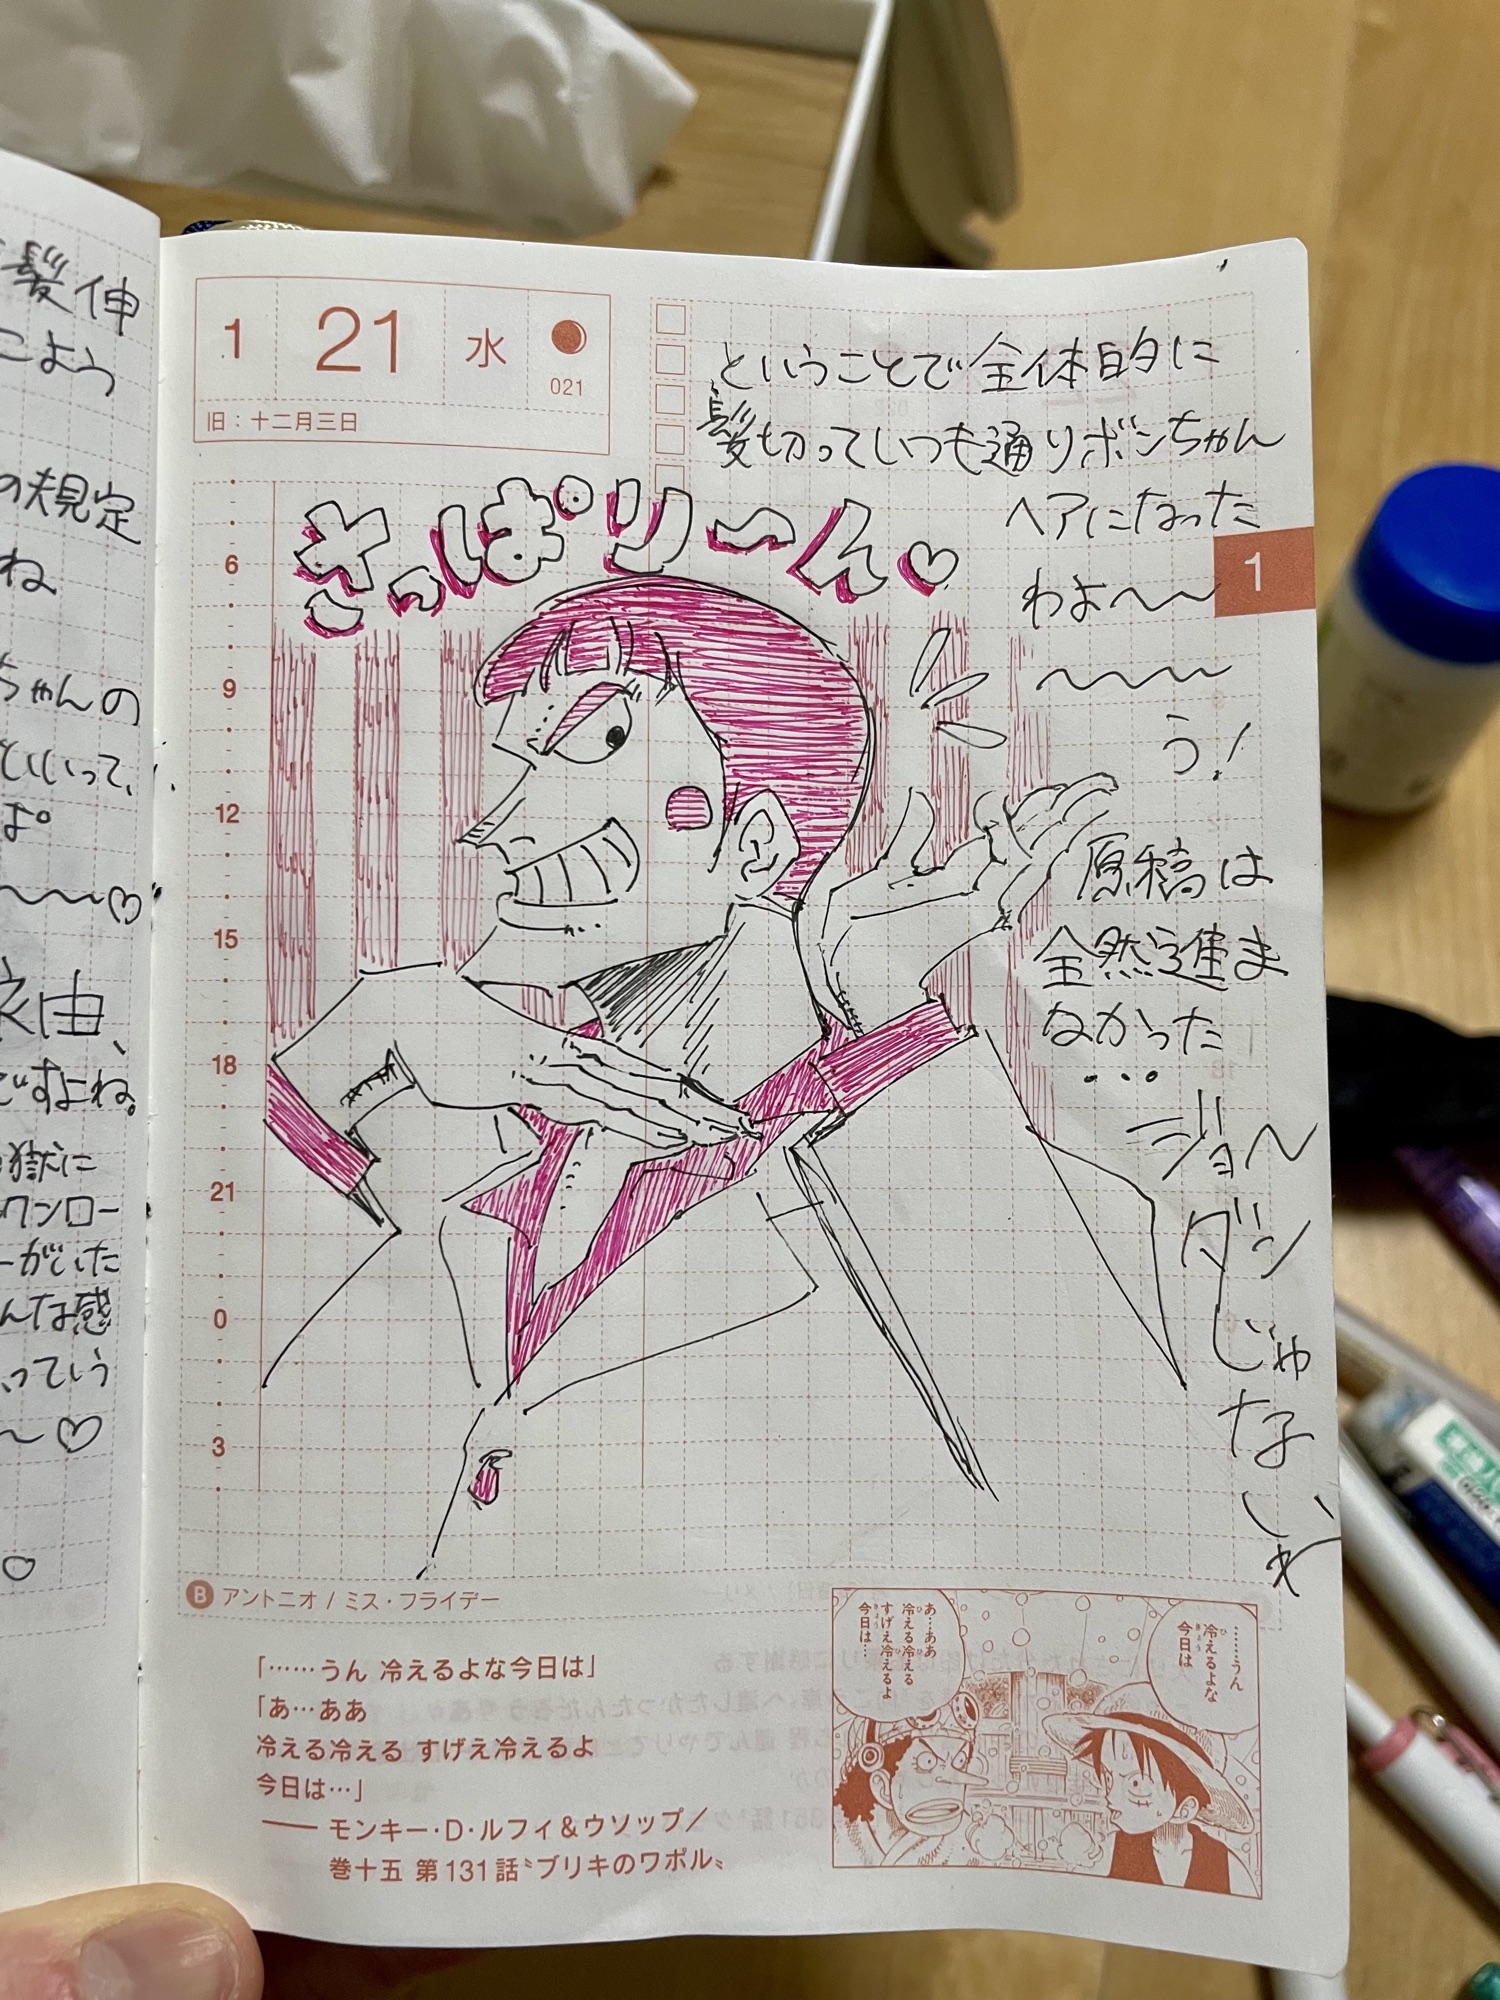 髪伸
こよう
の規定
ね
ちゃんの
といいって、
よ。
〜〜〜♡
ですよね。
獄に
ワンロー
ーがいた
んな感
っていう
〜♡
1
21
水
021
旧：十二月三日
ということで全体的に
髪切っていつも通りボンちゃん
ヘアになった
わよ〜〜
〜〜〜
う!
さっぱりーん♡
1
6
9
12
15
18
21
0
3
原稿は
全然進ま
なかった
...
ジョ〜
ダン
じゃ
ない
わ
B アントニオ / ミス・フライデー
「……うん 冷えるよな今日は」
「あ…ああ
冷える冷える すげえ冷えるよ
今日は…」
—— モンキー・D・ルフィ＆ウソップ／
巻十五 第131話〝ブリキのワポル〟
………うん
冷えるよな
今日は
あ…ああ
冷える冷える
すげえ冷えるよ
今日は…